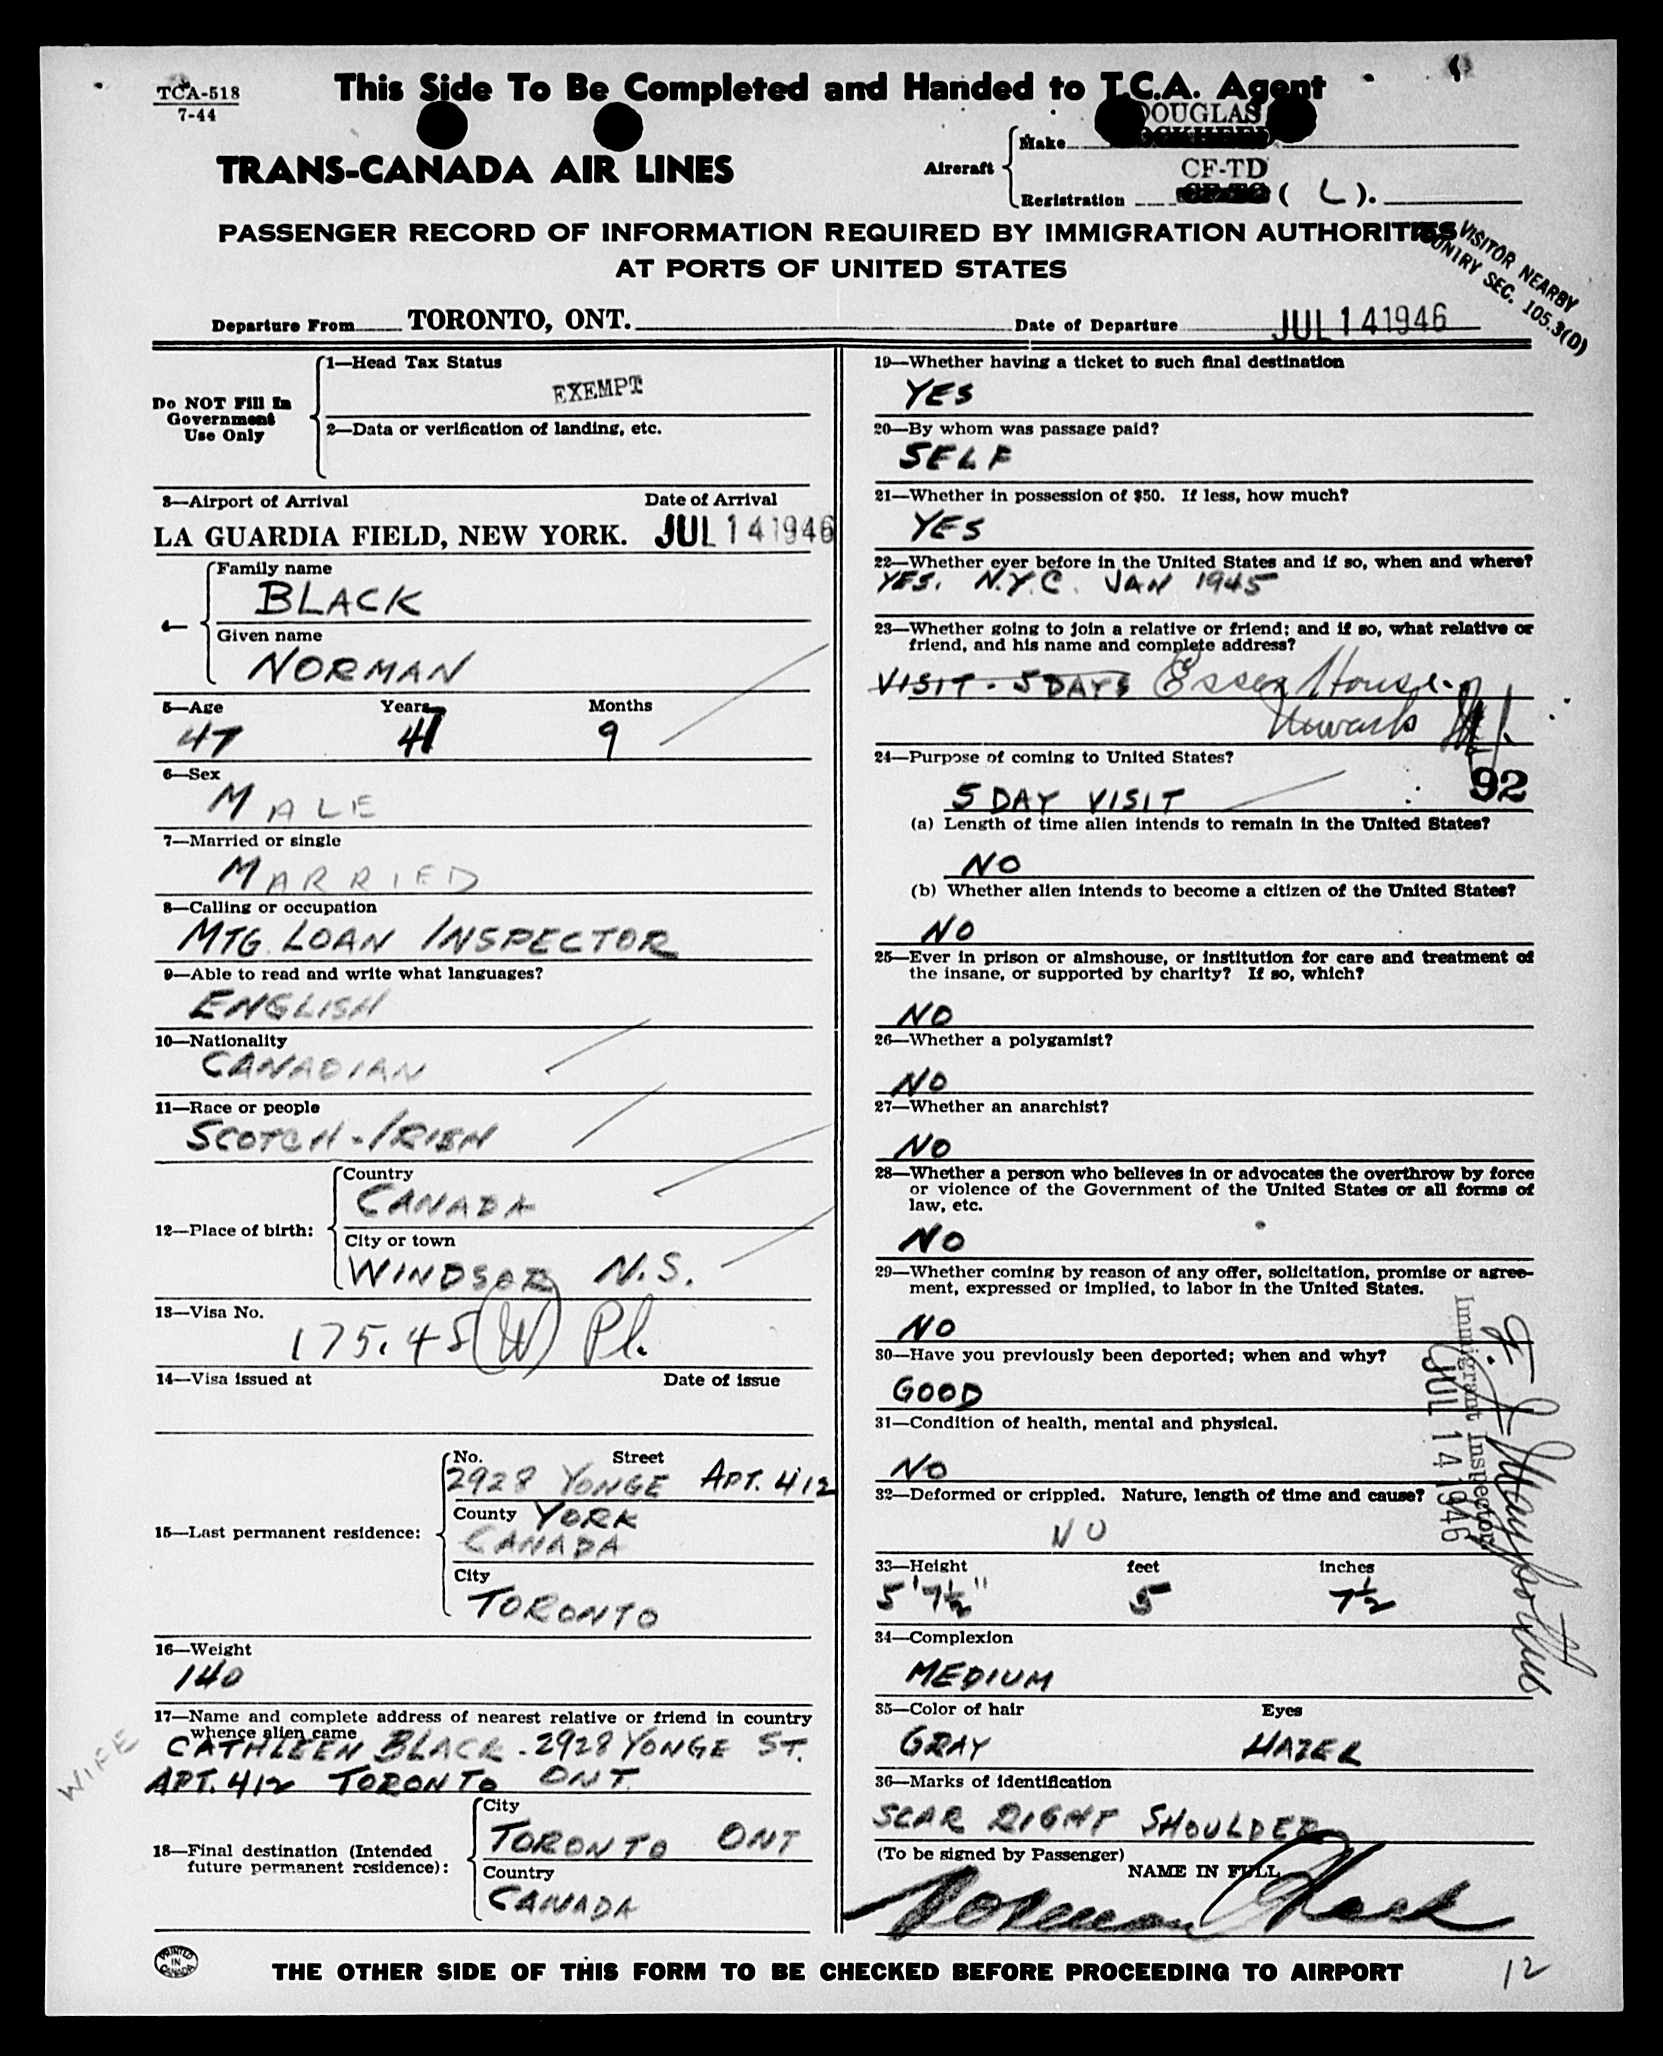 TCA-518
7-44
This Side To Be Completed and Handed to T.C.A. Agent
TRANS-CANADA AIR LINES
Aircraft
Make
DOUGLAS
Registration
CF-TD
( L ).
PASSENGER RECORD OF INFORMATION REQUIRED BY IMMIGRATION AUTHORITIES
AT PORTS OF UNITED STATES
VISITOR NEARBY
COUNTRY SEC. 105.3(D)
Departure From TORONTO, ONT.
Date of Departure JUL 14 1946
Do NOT Fill In
Government
Use Only
1—Head Tax Status
EXEMPT
2—Data or verification of landing, etc.
3—Airport of Arrival Date of Arrival
LA GUARDIA FIELD, NEW YORK. JUL 14 1946
4—
Family name
BLACK
Given name
NORMAN
5—Age Years Months
47 47 9
6—Sex
MALE
7—Married or single
MARRIED
8—Calling or occupation
MTG. LOAN INSPECTOR
9—Able to read and write what languages?
ENGLISH
10—Nationality
CANADIAN
11—Race or people
SCOTCH-IRISH
12—Place of birth:
Country
CANADA
City or town
WINDSOR N.S.
13—Visa No.
175.45 (W) Pl.
14—Visa issued at Date of issue
15—Last permanent residence:
No. Street
2928 YONGE APT. 412
County YORK
CANADA
City
TORONTO
16—Weight
140
17—Name and complete address of nearest relative or friend in country
whence alien came
WIFE
CATHLEEN BLACK - 2928 YONGE ST.
APT. 412 TORONTO ONT.
18—Final destination (Intended
future permanent residence):
City
TORONTO ONT
Country
CANADA
19—Whether having a ticket to such final destination
YES
20—By whom was passage paid?
SELF
21—Whether in possession of $50. If less, how much?
YES
22—Whether ever before in the United States and if so, when and where?
YES. N.Y.C. JAN 1945
23—Whether going to join a relative or friend; and if so, what relative or
friend, and his name and complete address?
VISIT - 5 DAYS Essex House.
Newark
24—Purpose of coming to United States?
92
5 DAY VISIT
(a) Length of time alien intends to remain in the United States?
NO
(b) Whether alien intends to become a citizen of the United States?
NO
25—Ever in prison or almshouse, or institution for care and treatment of
the insane, or supported by charity? If so, which?
NO
26—Whether a polygamist?
NO
27—Whether an anarchist?
NO
28—Whether a person who believes in or advocates the overthrow by force
or violence of the Government of the United States or all forms of
law, etc.
NO
29—Whether coming by reason of any offer, solicitation, promise or agree-
ment, expressed or implied, to labor in the United States.
NO
30—Have you previously been deported; when and why?
GOOD
31—Condition of health, mental and physical.
NO
32—Deformed or crippled. Nature, length of time and cause?
NO
Immigrant Inspector
JUL 14 1946
33—Height feet inches
5' 7½" 5 7½
34—Complexion
MEDIUM
35—Color of hair Eyes
GRAY HAZEL
36—Marks of identification
SCAR RIGHT SHOULDER
(To be signed by Passenger)
NAME IN FULL
Norman Black
PRINTED IN CANADA
THE OTHER SIDE OF THIS FORM TO BE CHECKED BEFORE PROCEEDING TO AIRPORT
12